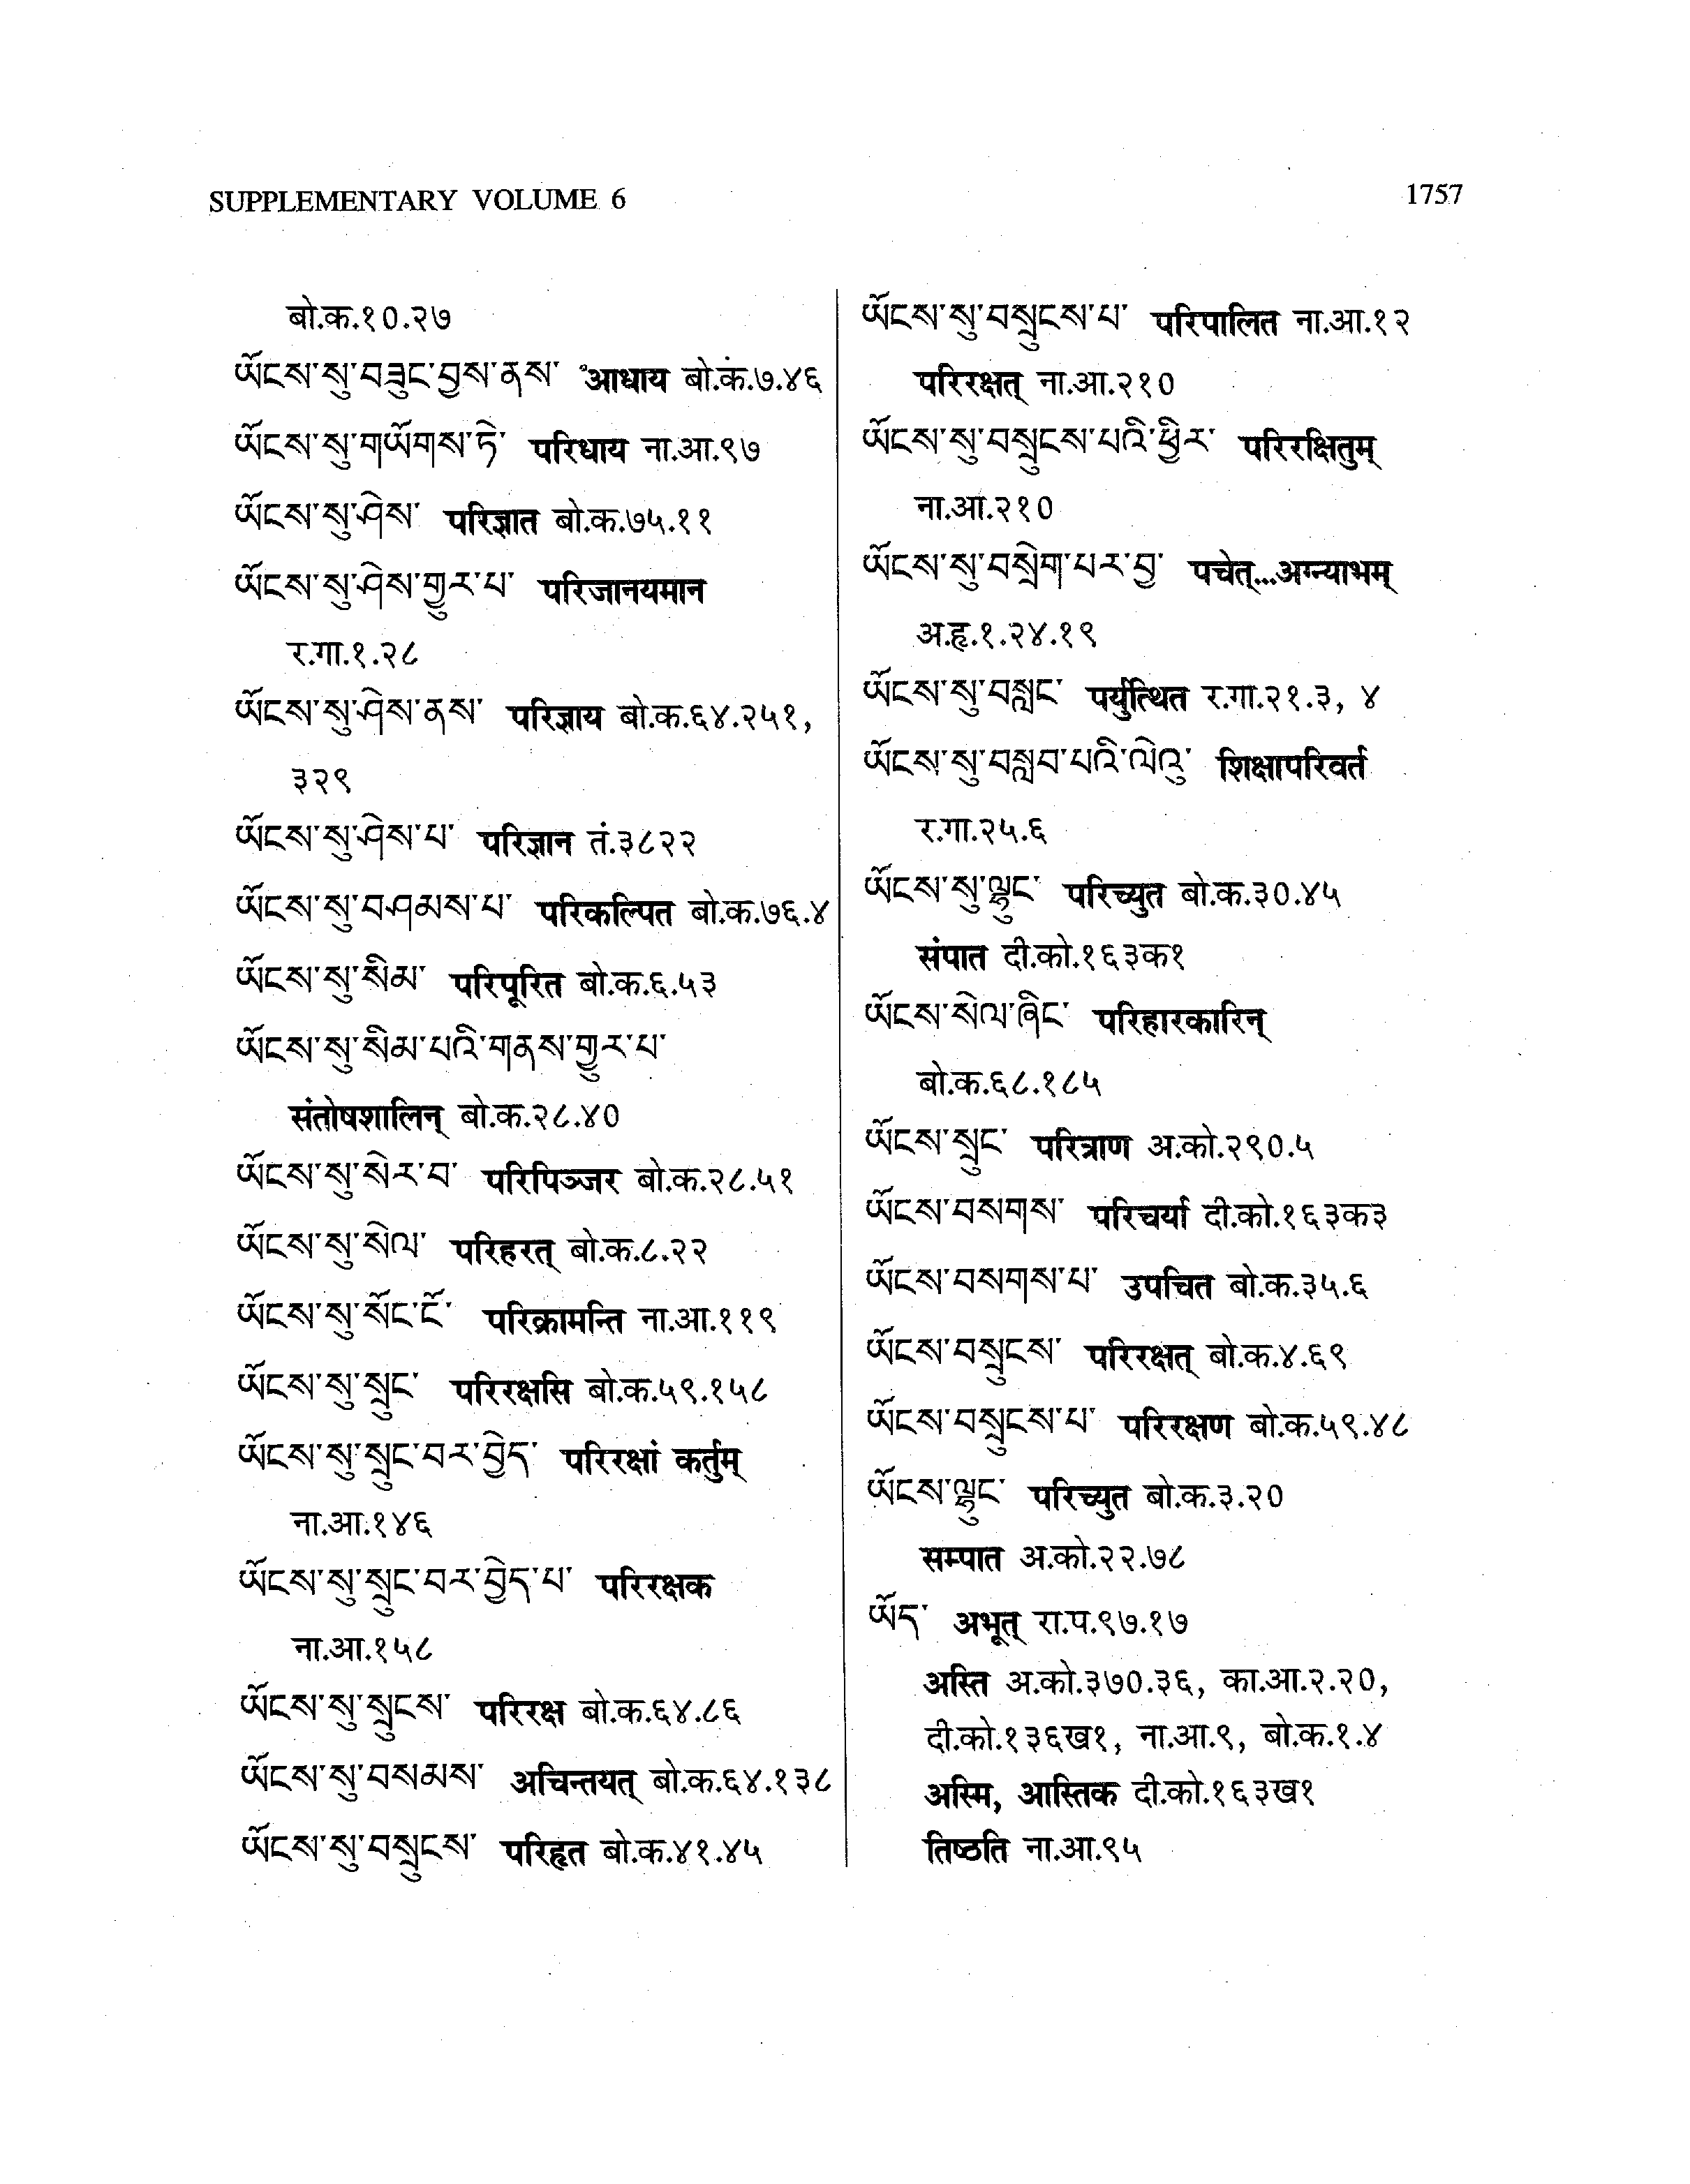 SUPPLEMENTARY VOLUME 6
1757
बो.क.१०.२७
ཡོངས་སུ་བཟུང་བྱས་ནས་ आधाय बो.क.७.४६
ཡོངས་སུ་གཡོགས་ཏེ་ परिधाय ना.आ.९७
ཡོངས་སུ་ཤེས་ परिज्ञात बो.क.७५.११
ཡོངས་སུ་ཤེས་གྱུར་པ་ परिजानयमान
र.गा.१.२८
ཡོངས་སུ་ཤེས་ནས་ परिज्ञाय बो.क.६४.२५१,
३२९
ཡོངས་སུ་ཤེས་པ་ परिज्ञान तं.३८२२
ཡོངས་སུ་བཤམས་པ་ परिकल्पित बो.क.७६.४
ཡོངས་སུ་སིམ་ परिपूरित बो.क.६.५३
ཡོངས་སུ་སིམ་པའི་གནས་གྱུར་པ་
संतोषशालिन् बो.क.२८.४०
ཡོངས་སུ་སེར་བ་ परिपिञ्जर बो.क.२८.५१
ཡོངས་སུ་སེལ་ परिहरत् बो.क.८.२२
ཡོངས་སུ་སོང་ངོ་ परिक्रामन्ति ना.आ.११९
ཡོངས་སུ་སྲུང་ परिरक्षसि बो.क.५९.१५८
ཡོངས་སུ་སྲུང་བར་བྱེད་ परिरक्षां कर्तुम्
ना.आ.१४६
ཡོངས་སུ་སྲུང་བར་བྱེད་པ་ परिरक्षक
ना.आ.१५८
ཡོངས་སུ་སྲུངས་ परिरक्ष बो.क.६४.८६
ཡོངས་སུ་བསམས་ अचिन्तयत् बो.क.६४.१३८
ཡོངས་སུ་བསྲུངས་ परिहृत बो.क.४१.४५
ཡོངས་སུ་བསྲུངས་པ་ परिपालित ना.आ.१२
परिरक्षत् ना.आ.२१०
ཡོངས་སུ་བསྲུངས་པའི་ཕྱིར་ परिरक्षितुम्
ना.आ.२१०
ཡོངས་སུ་བསྲེག་པར་བྱ་ पचेत्...अग्न्याभम्
अ.हृ.१.२४.१९
ཡོངས་སུ་བསླང་ पर्युत्थित र.गा.२१.३, ४
ཡོངས་སུ་བསླབ་པའི་ལེའུ་ शिक्षापरिवर्त
र.गा.२५.६
ཡོངས་སུ་ལྷུང་ परिच्युत बो.क.३०.४५
संपात दी.को.१६३क१
ཡོངས་སེལ་ཞིང་ परिहारकारिन्
बो.क.६८.१८५
ཡོངས་སྲུང་ परित्राण अ.को.२९०.५
ཡོངས་བསགས་ परिचर्या दी.को.१६३क३
ཡོངས་བསགས་པ་ उपचित बो.क.३५.६
ཡོངས་བསྲུངས་ परिरक्षत् बो.क.४.६९
ཡོངས་བསྲུངས་པ་ परिरक्षण बो.क.५९.४८
ཡོངས་ལྷུང་ परिच्युत बो.क.३.२०
सम्पात अ.को.२२.७८
ཡོད་ अभूत् रा.प.९७.१७
अस्ति अ.को.३७०.३६, का.आ.२.२०,
दी.को.१३६ख१, ना.आ.९, बो.क.१.४
अस्मि, आस्तिक दी.को.१६३ख१
तिष्ठति ना.आ.९५